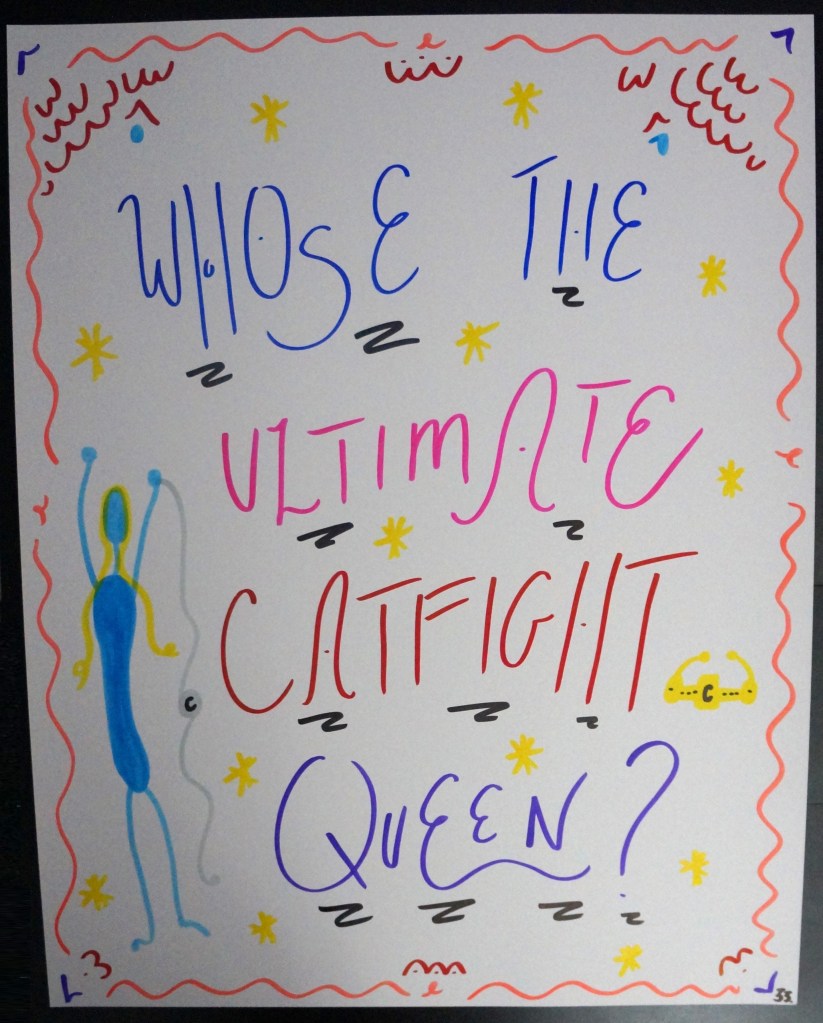 WHOSE THE
ULTIMATE
CATFIGHT
C
C
QUEEN?